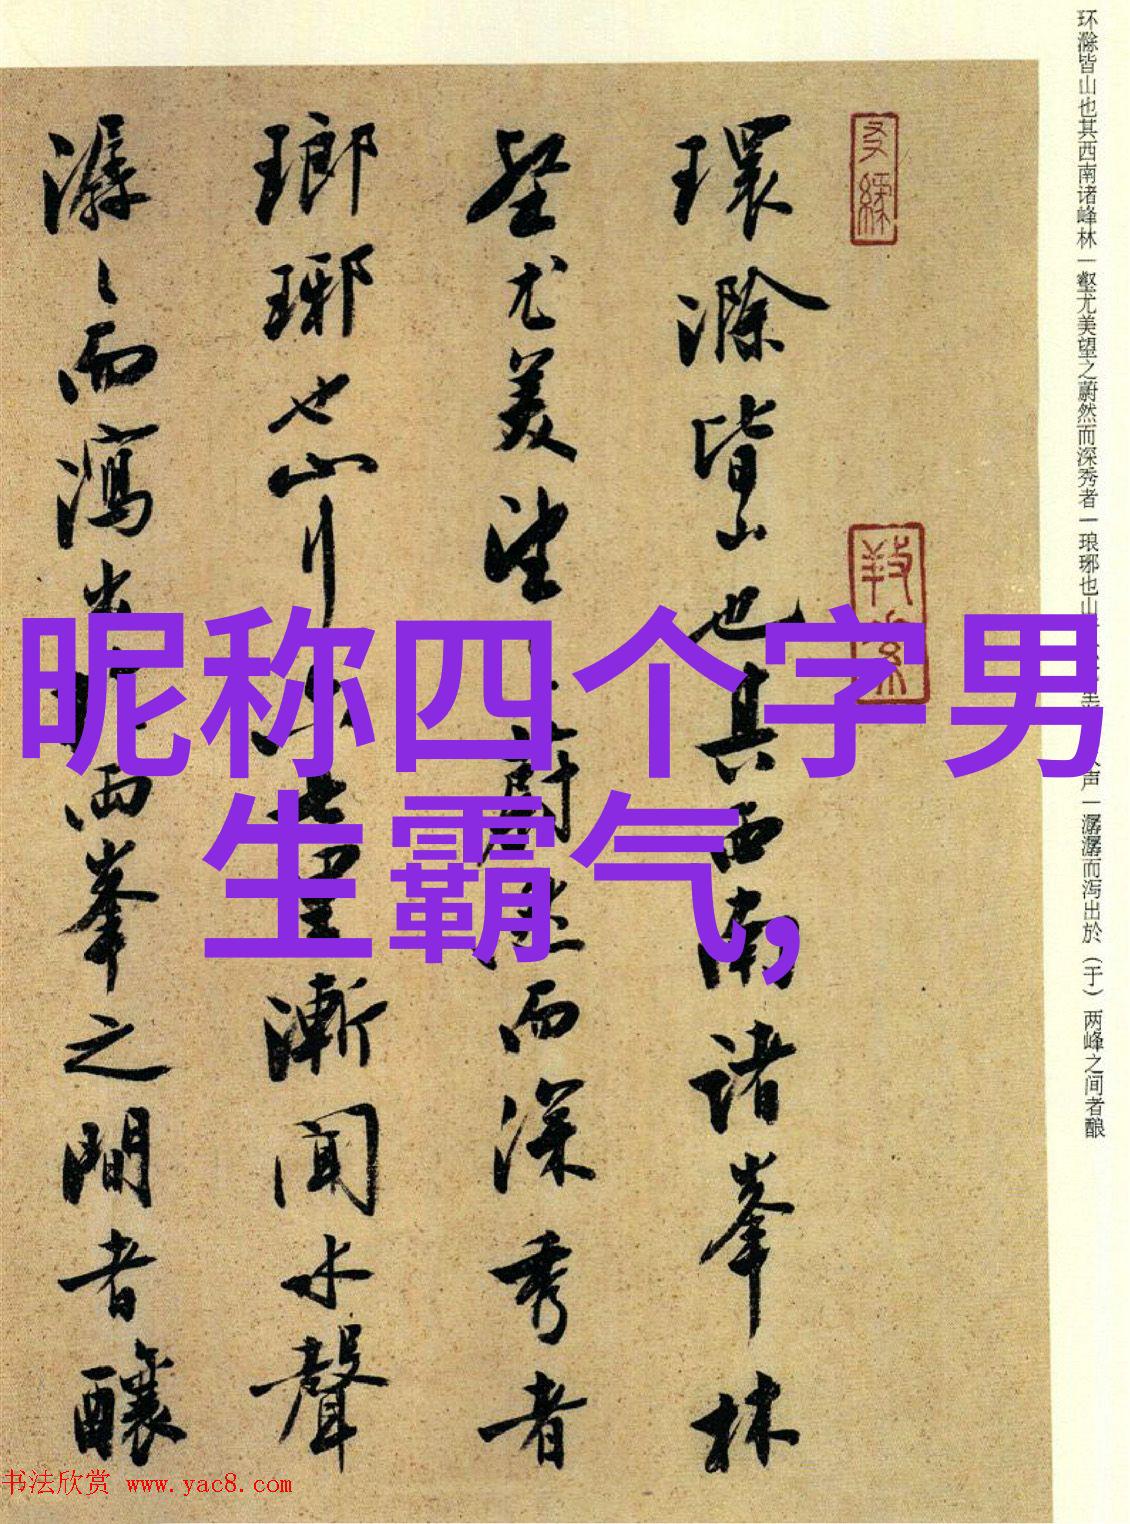 昵称四个字男
生霸气,
环滁皆山也其西南诸峰林一壑尤美望之蔚然而深秀者一琅琊也山声一潺潺而泻出於(于)两峰之间者酿
環滁皆山也其西南諸峯林
壑尤美望蔚然而深秀者
瑯琊也山行七里漸聞水聲
潺〻而瀉出於兩峯之間者釀
书法欣赏 www.yac8.com